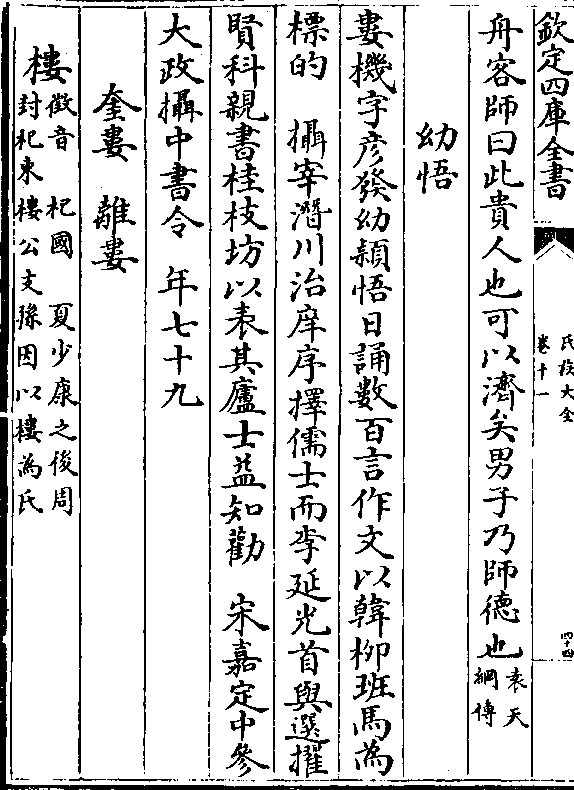 欽定四庫全書
氏族大全
卷十一
四十四
舟客師曰此貴人也可以濟矣男子乃師德也袁天
綱傳
幼悟
婁機字彦發幼穎悟日誦數百言作文以韓柳班馬為
標的 攝宰潛川治庠序擇儒士而李延光首與選擢
賢科親書桂枝坊以表其廬士益知勸 宋嘉定中參
大政攝中書令 年七十九
奎婁 離婁
樓徵音 杞國 夏少康之後周
封杞東樓公支孫因以樓為氏